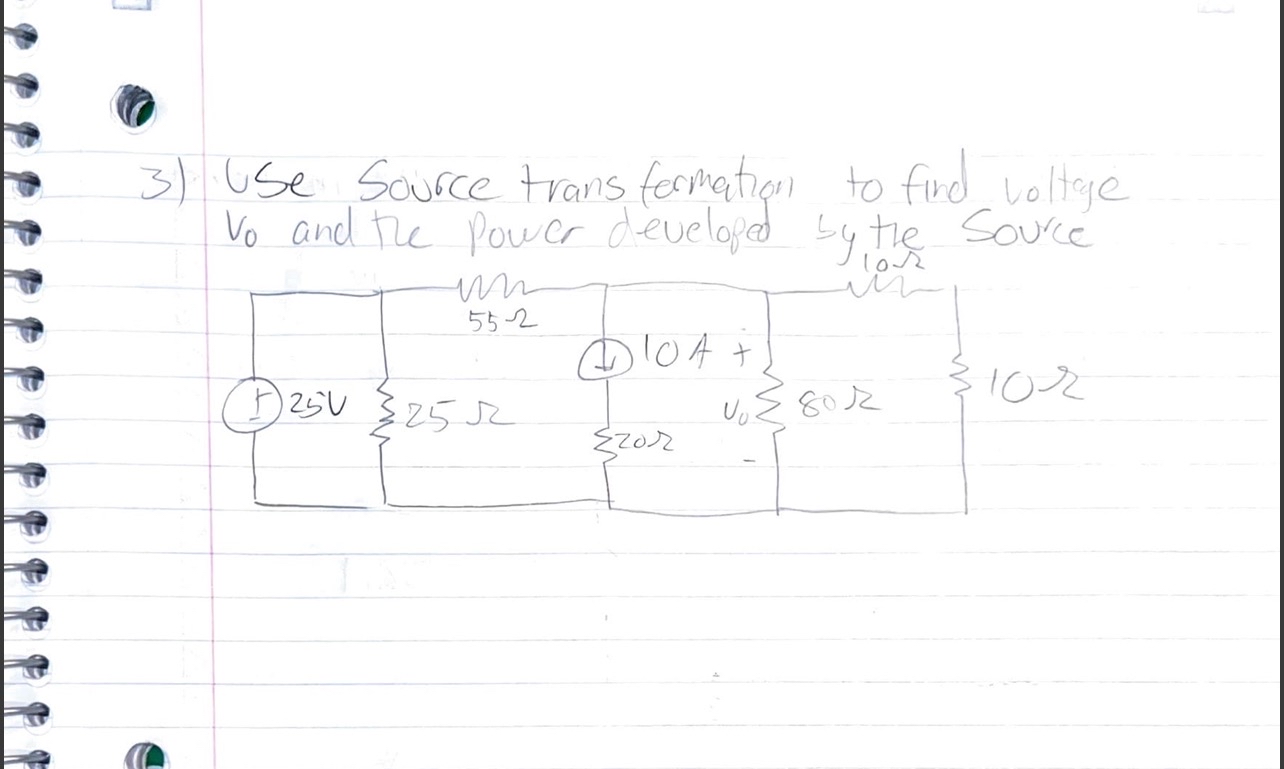 3) Use Source transformation to find voltage
Vo and the power developed by the Source
10Ω
55Ω
10A +
25V
25Ω
Vo
80Ω
10Ω
20Ω
-